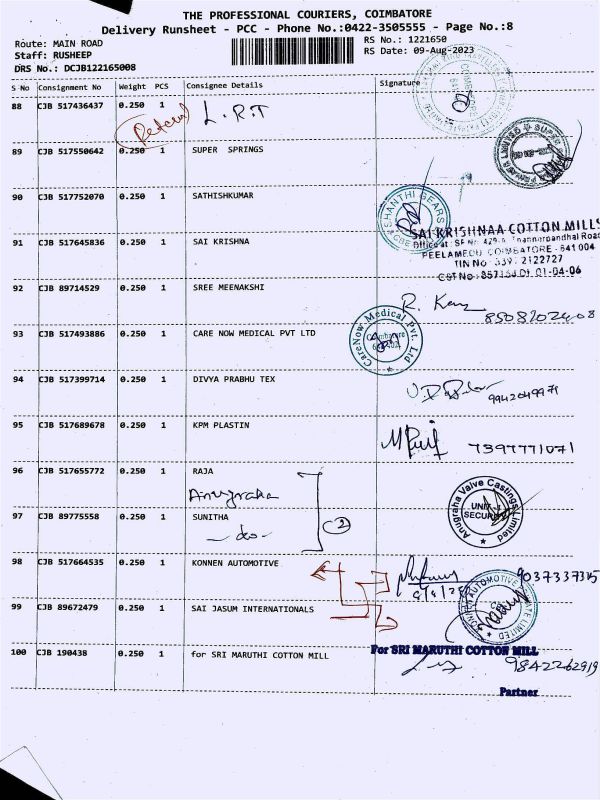 THE PROFESSIONAL COURIERS, COIMBATORE
Delivery Runsheet - PCC - Phone No.:0422-3505555 - Page No.:8
Route: MAIN ROAD
RS No.: 1221650
Staff: RUSHEEP
RS Date: 09-Aug-2023
DRS No.: DCJB122165008
S No Consignment No Weight PCS Consignee Details Signature
88 CJB 517436437 0.250 1 L.R.T
89 CJB 517550642 0.250 1 SUPER SPRINGS
90 CJB 517752070 0.250 1 SATHISHKUMAR
SHANTHI GEARS
91 CJB 517645836 0.250 1 SAI KRISHNA
SAI KRISHNAA COTTON MILLS
PEELAMEDU COIMBATORE - 641 004
92 CJB 89714529 0.250 1 SREE MEENAKSHI
93 CJB 517493886 0.250 1 CARE NOW MEDICAL PVT LTD
CareNow Medical Pvt. Ltd
Coimbatore
94 CJB 517399714 0.250 1 DIVYA PRABHU TEX
9942049971
95 CJB 517689678 0.250 1 KPM PLASTIN
7397771071
96 CJB 517655772 0.250 1 RAJA
Anugraha
Anugraha Valve Castings Limited
UNIT
SECURITY
97 CJB 89775558 0.250 1 SUNITHA
-do-
2
98 CJB 517664535 0.250 1 KONNEN AUTOMOTIVE
9037337315
99 CJB 89672479 0.250 1 SAI JASUM INTERNATIONALS
100 CJB 190438 0.250 1 for SRI MARUTHI COTTON MILL
For SRI MARUTHI COTTON MILL
9842262919
Partner